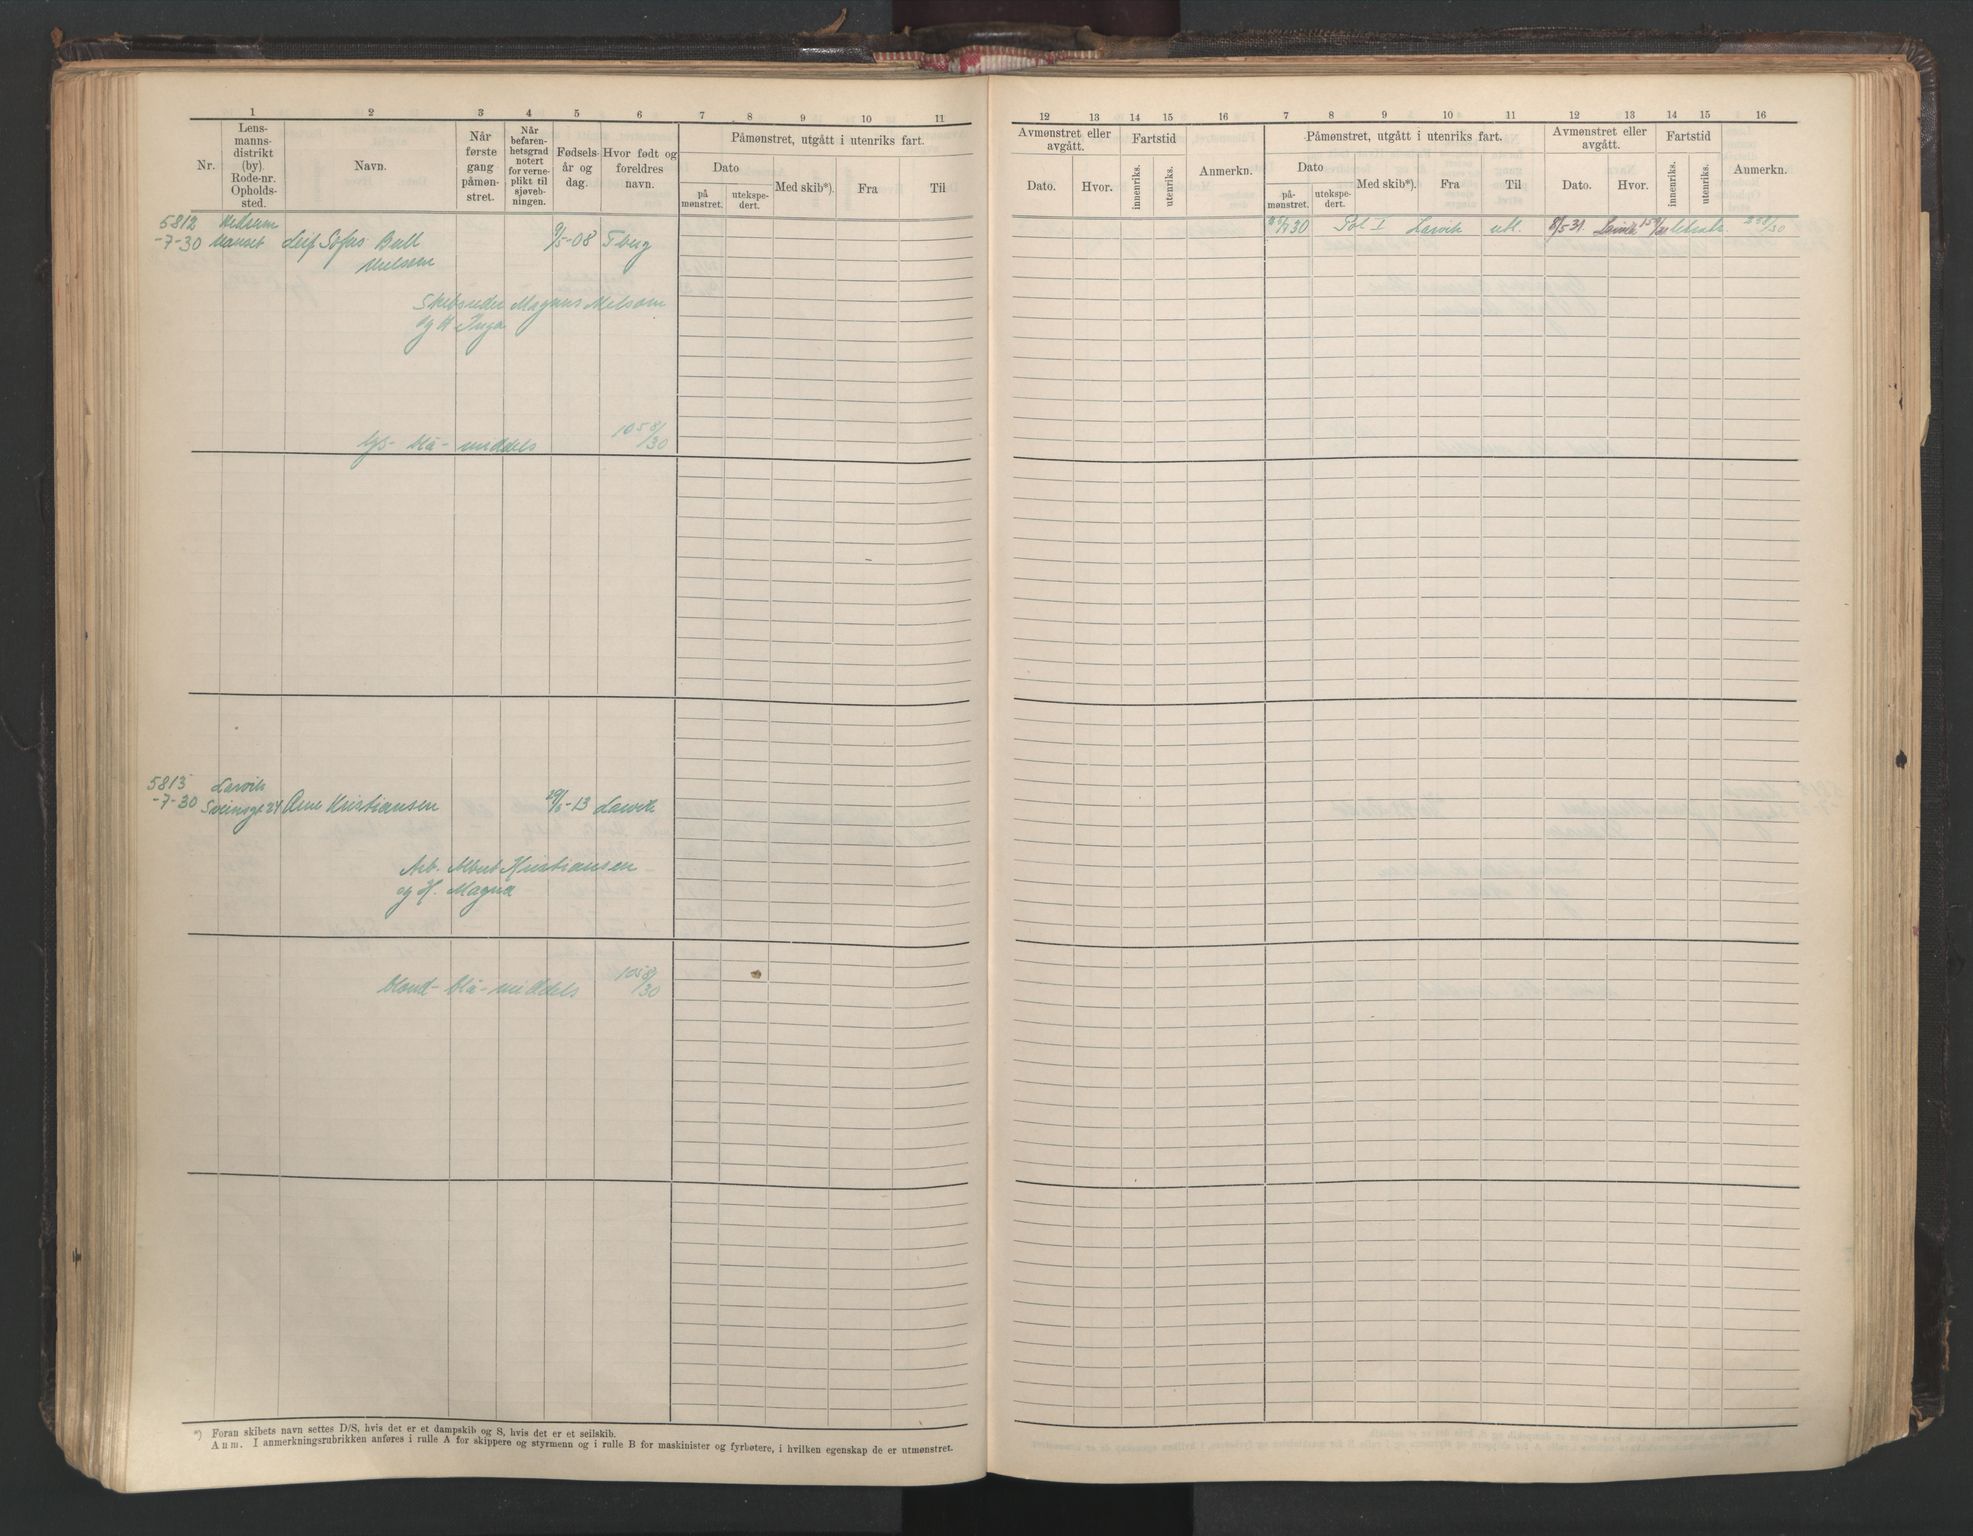 1 2 3 4 5 6 7 8 9 10 11
Nr.
Lens-
manns-
distrikt
(by)
Rode-nr.
Opholds-
sted.
Navn.
Når
første
gang
påmøn-
stret.
Når
befaren-
hetsgrad
notert
for verne-
plikt til
sjøveb-
ningen.
Fødsels-
år og
dag.
Hvor født og
foreldres
navn.
Påmønstret, utgått i utenriks fart.
Dato
på
mønstret.
utekspe-
dert.
Med skib*).
Fra
Til
5812
-7-30
Leif Sofus Bull
Melsom
9/5-08 Tberg
Skibsreder Magnus Melsom
og H Inga
lys- blå- middels
1058/30
5813 Larvik
-7-30 Sveinsgt 24 Arne Kristiansen 29/6-13 Larvik
Arb. Albert Kristiansen
og H. Magna
blond- blå- middels
1058/30
*) Foran skibets navn settes D/S, hvis det er et dampskib og S, hvis det er et seilskib.
Anm. I anmerkningsrubrikken anføres i rulle A for skippere og styrmenn og i rulle B for maskinister og fyrbøtere, i hvilken egenskap de er utmønstret.
12 13 14 15 16 7 8 9 10 11 12 13 14 15 16
Avmønstret eller
avgått.
Dato.
Hvor.
Fartstid
innenriks.
utenriks.
Anmerkn.
Påmønstret, utgått i utenriks fart.
Dato
på-
mønstret.
utekspe-
dert.
Med skib*).
Fra
Til
Avmønstret eller
avgått.
Dato.
Hvor.
Fartstid
innenriks.
utenriks.
Anmerkn.
Pol I Larvik utl. 8/5 31. Larvik